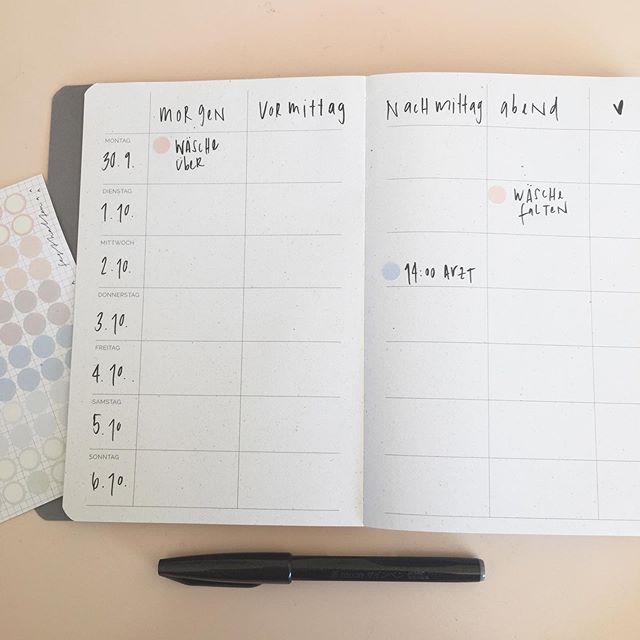 morgen
Vormittag
Nachmittag
abend
♥
MONTAG
30.9.
WÄSCHE
ÜBER
DIENSTAG
1.10.
WÄSCHE
FALTEN
MITTWOCH
2.10.
14:00 ARZT
DONNERSTAG
3.10.
FREITAG
4.10.
SAMSTAG
5.10
SONNTAG
6.10.